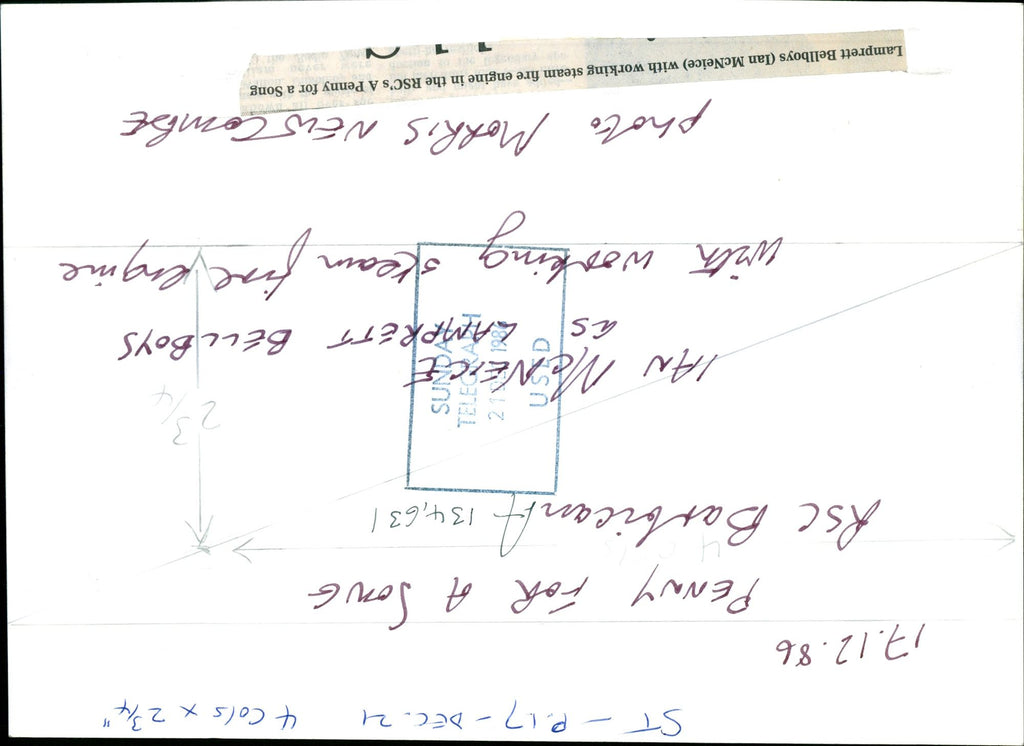 ST - P.17 - DEC. 21 4 Cols x 2 3/4"
17.12.86
PENNY FOR A SONG
4 cols
RSC Barbican
A 134,631
2 3/4
IAN McNEICE
as LAMPRETT BELLBOYS
with working steam fire engine
SUNDAY
TELEGRAPH
21 DEC 1986
USED
photo MORRIS NEWCOMBE
Lamprett Bellboys (Ian McNeice) with working steam fire engine in the RSC's A Penny for a Song